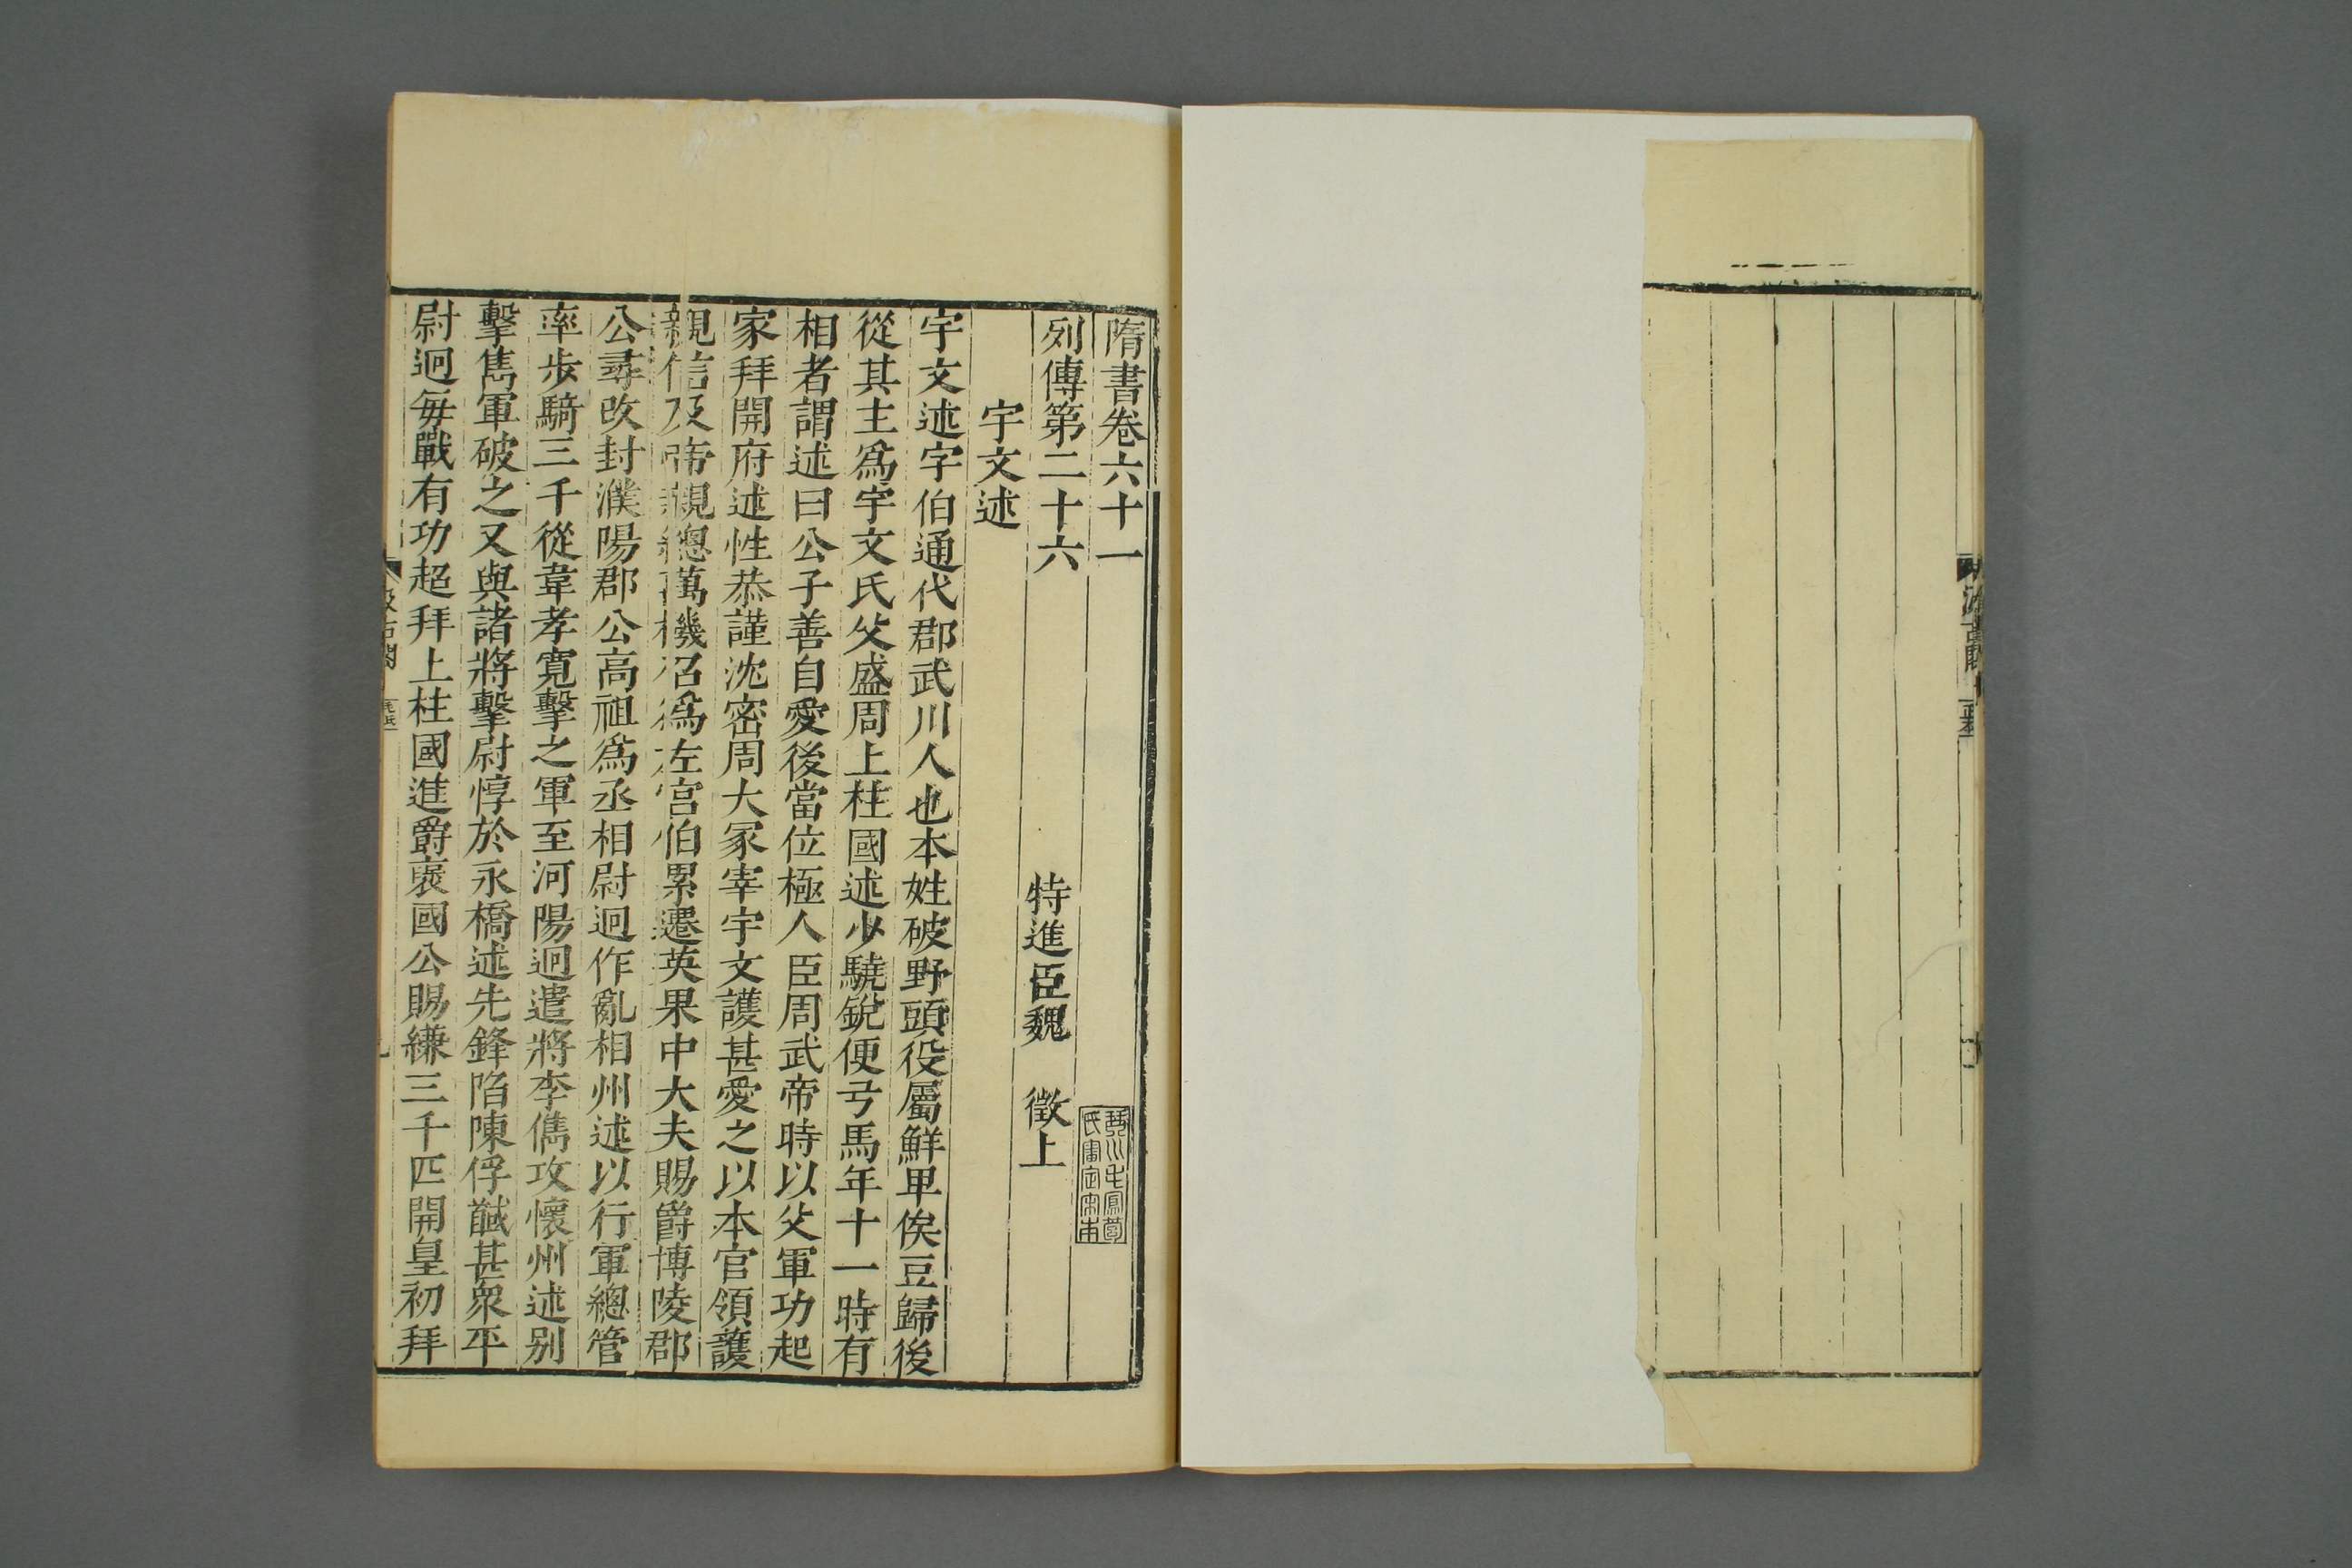 隋書卷六十一
列傳第二十六
特進臣魏　徵上
宇文述
宇文述字伯通代郡武川人也本姓破野頭役屬鮮卑俟豆歸後
從其主爲宇文氏父盛周上柱國述少驍銳便弓馬年十一時有
相者謂述曰公子善自愛後當位極人臣周武帝時以父軍功起
家拜開府述性恭謹沈密周大冢宰宇文護甚愛之以本官領護
親信及帝親總萬機召爲左宮伯累遷英果中大夫賜爵博陵郡
公尋改封濮陽郡公高祖爲丞相尉迥作亂相州述以行軍總管
率步騎三千從韋孝寬擊之軍至河陽迥遣將李儁攻懷州述别
擊儁軍破之又與諸將擊尉惇於永橋述先鋒陷陳俘馘甚衆平
尉迥每戰有功超拜上柱國進爵褒國公賜縑三千匹開皇初拜
琴川毛鳳苞
氏審定宋本
汲古閣
毛氏